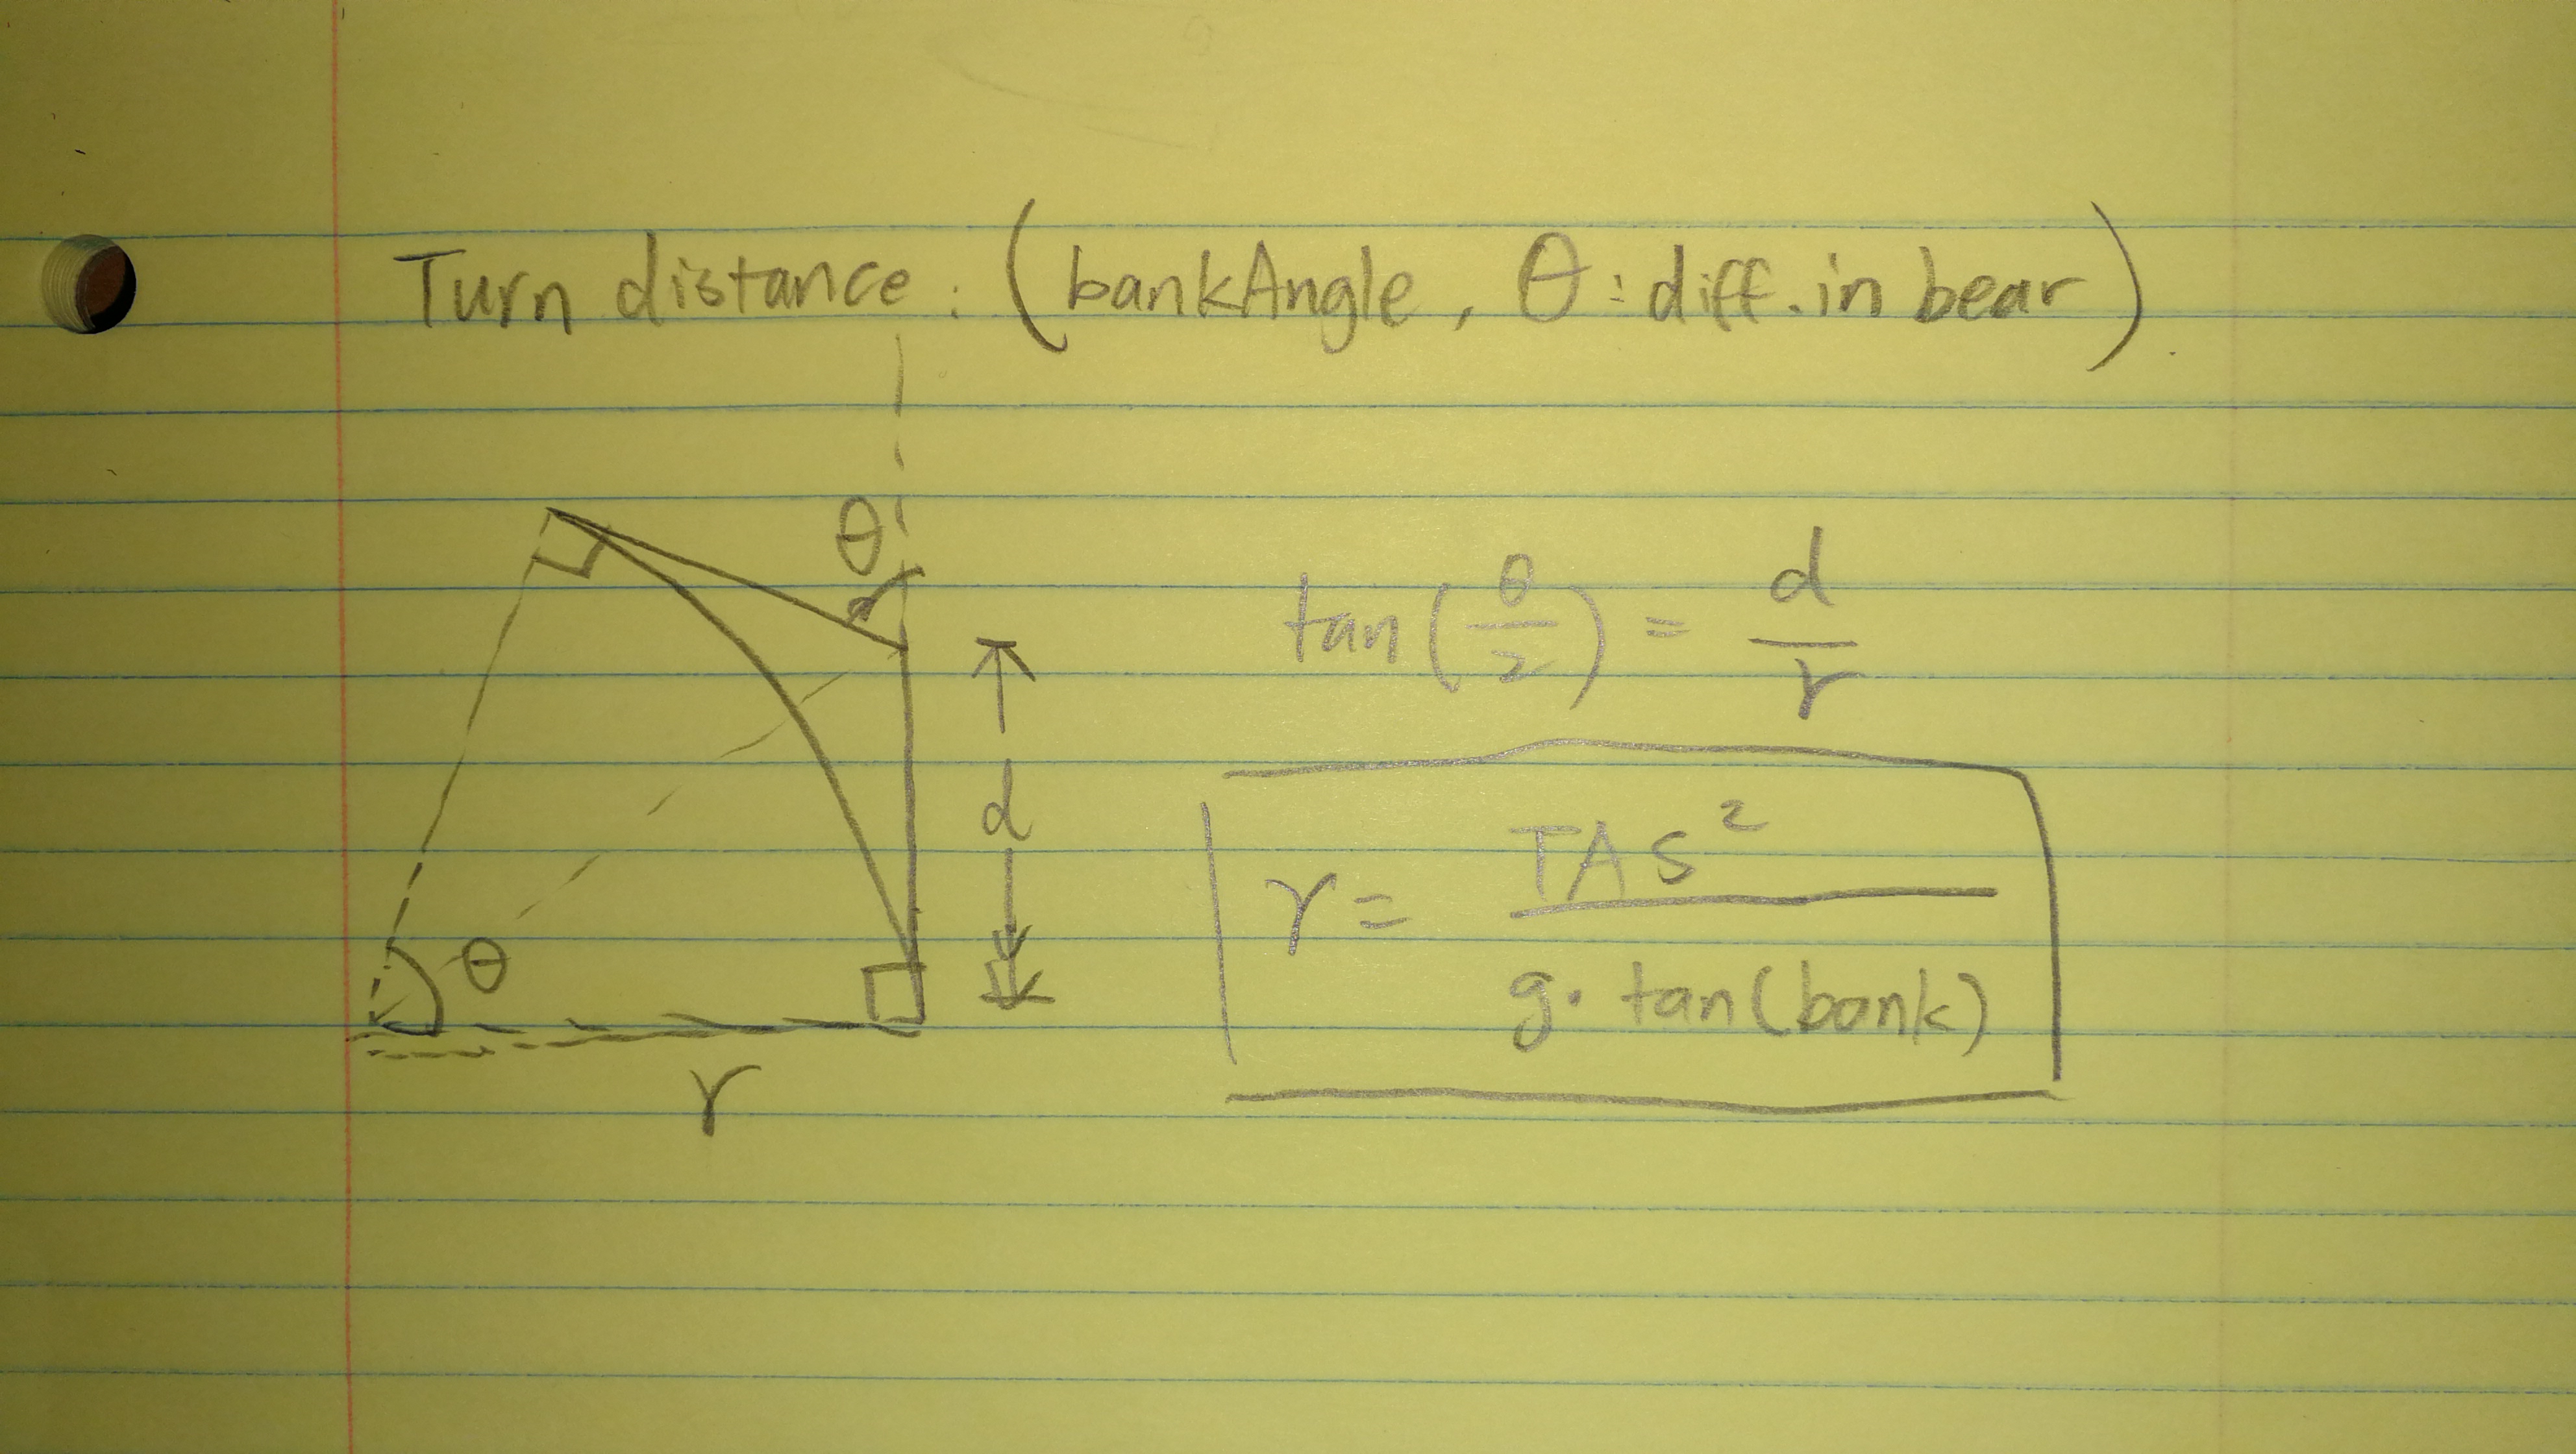 Turn distance : (bankAngle, θ : diff. in bear)
θ
tan(θ/2) = d/r
d
r = TAS² / g · tan(bank)
θ
r